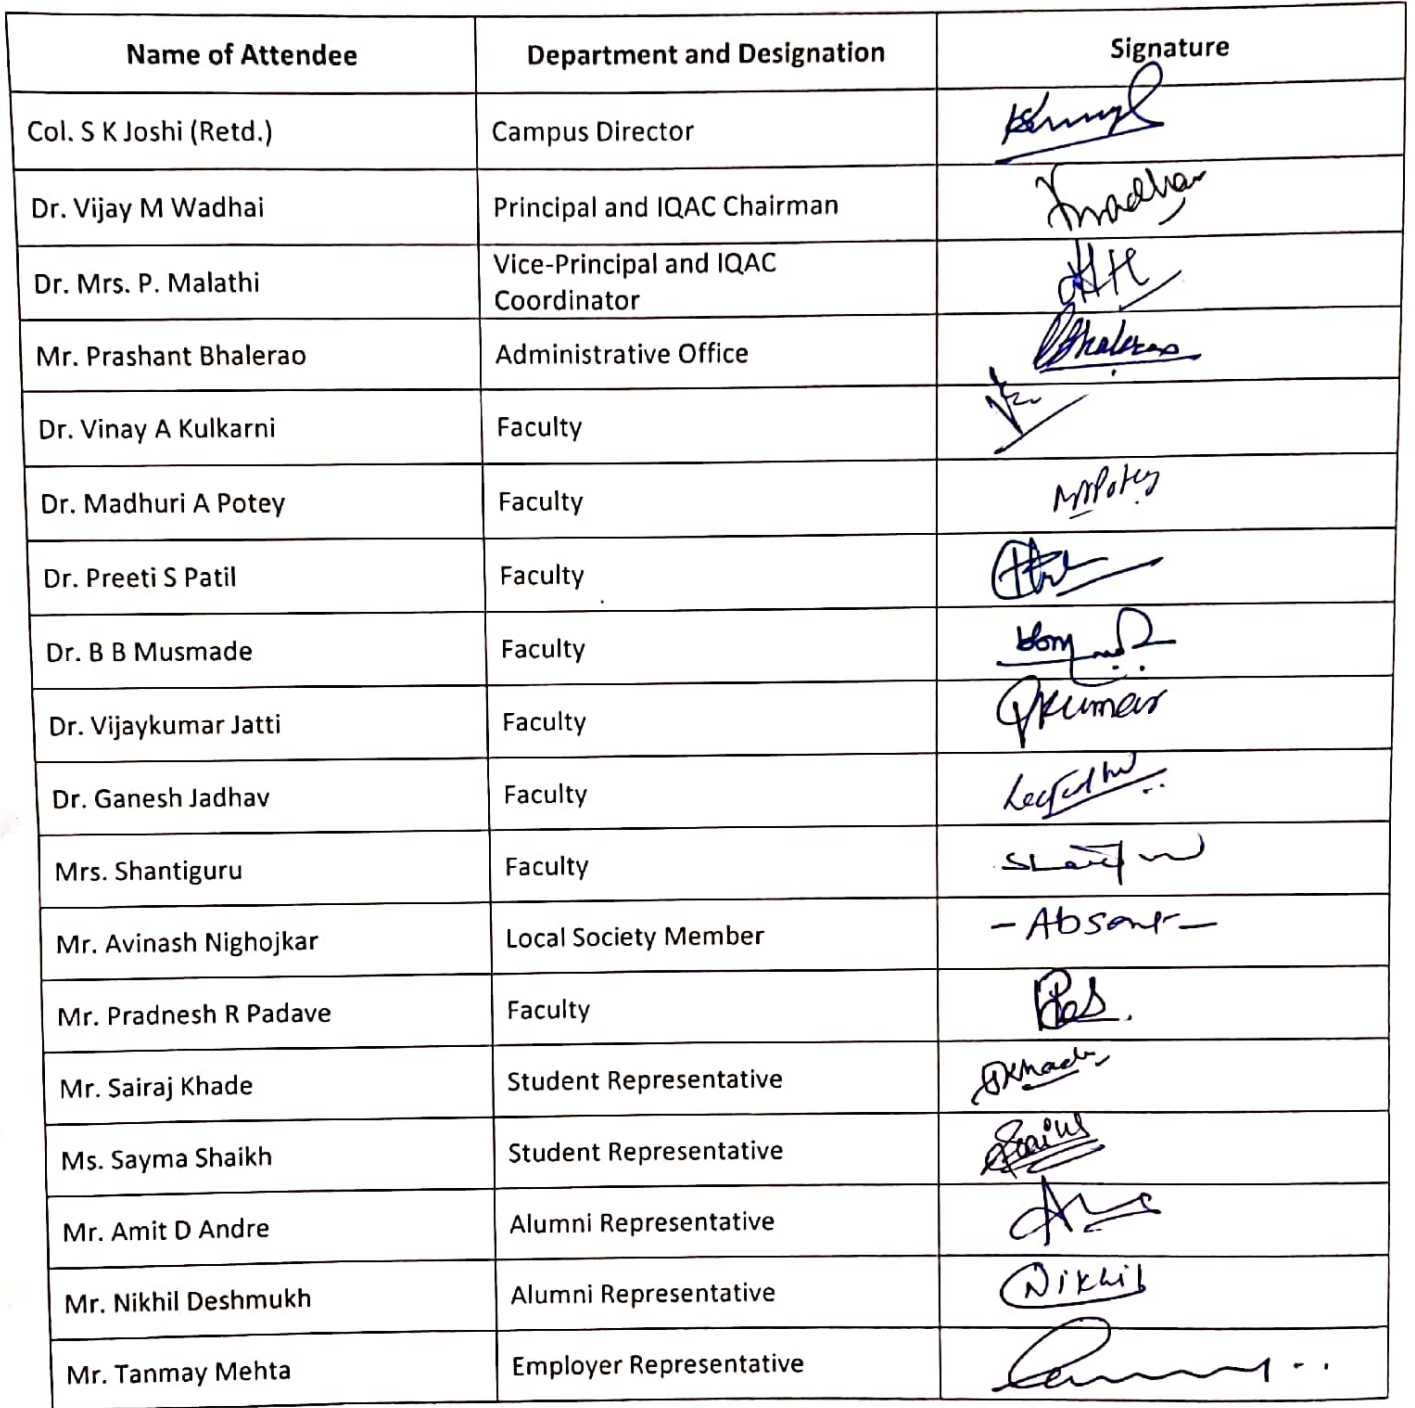 Name of Attendee Department and Designation Signature
Col. S K Joshi (Retd.) Campus Director
Dr. Vijay M Wadhai Principal and IQAC Chairman
Dr. Mrs. P. Malathi Vice-Principal and IQAC
Coordinator
Mr. Prashant Bhalerao Administrative Office Bhalerao
Dr. Vinay A Kulkarni Faculty
Dr. Madhuri A Potey Faculty MAPotey
Dr. Preeti S Patil Faculty
Dr. B B Musmade Faculty
Dr. Vijaykumar Jatti Faculty Vkumar
Dr. Ganesh Jadhav Faculty
Mrs. Shantiguru Faculty
Mr. Avinash Nighojkar Local Society Member - Absent -
Mr. Pradnesh R Padave Faculty
Mr. Sairaj Khade Student Representative SKhade
Ms. Sayma Shaikh Student Representative
Mr. Amit D Andre Alumni Representative
Mr. Nikhil Deshmukh Alumni Representative Nikhil
Mr. Tanmay Mehta Employer Representative